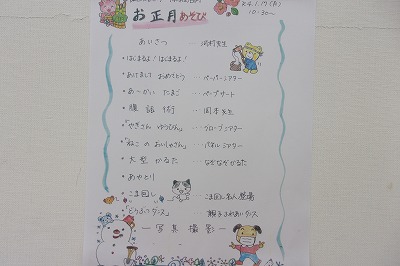 お正月あそび
10:30〜
あいさつ ‥‥
・はじまるよ!はじまるよ!
・あけましておめでとう ‥‥ ペーパーシアター
・あーかい たまご ‥‥ ペープサート
・腹話術 ‥‥ 岡本先生
・「やぎさん ゆうびん」 ‥‥ グローブシアター
・「ねこの おいしゃさん」 ‥‥ パネルシアター
・大型 かるた ‥‥ なぞなぞかるた
・あやとり
・こま回し ‥‥ こま回し名人登場
・ ‥‥ 親子ふれあいダンス
ー写真撮影ー